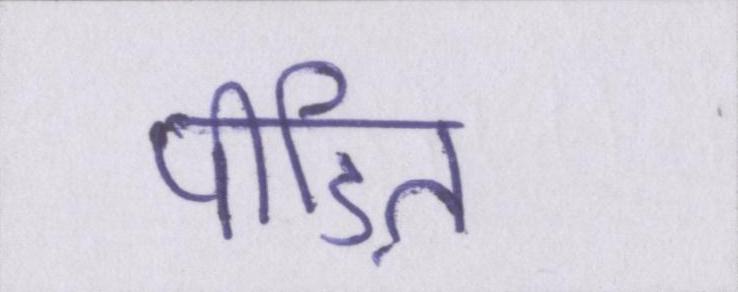 पीड़ित